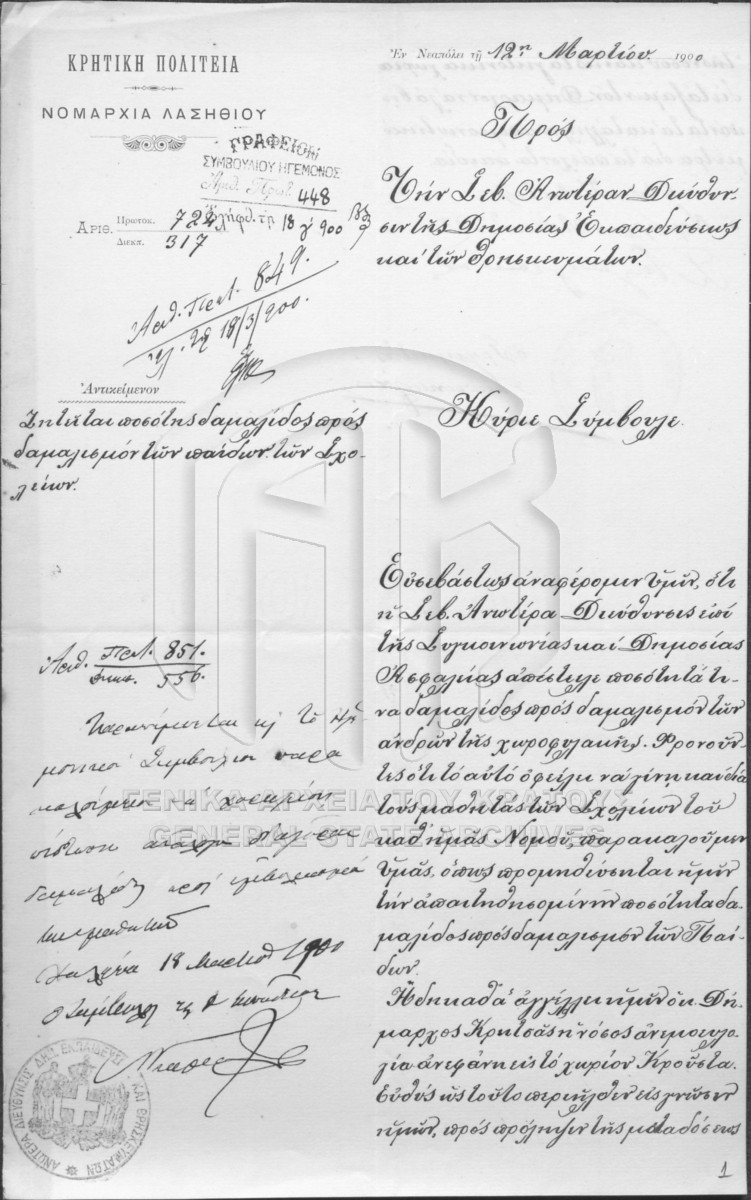 ΚΡΗΤΙΚΗ ΠΟΛΙΤΕΙΑ
ΝΟΜΑΡΧΙΑ ΛΑΣΗΘΙΟΥ
ΓΡΑΦΕΙΟΝ
ΣΥΜΒΟΥΛΙΟΥ ΗΓΕΜΟΝΟΣ
Ἀριθ. Πρωτ. 448
Ἐλήφθη τῇ 18 γ 900
ΑΡΙΘ. Πρωτοκ. 724
Διεκπ. 317
Ἀριθ. Πρωτ. 849.
18/3/900.
Ἀντικείμενον
Ζητεῖται ποσότης δαμαλίδος πρός
δαμαλισμόν τῶν παίδων τῶν Σχο-
λείων.
Ἐν Νεαπόλει τῇ 12ῃ Μαρτίου 1900
Πρός
Τήν Σεβ. Ἀνωτέραν Διεύθυν-
σιν τῆς Δημοσίας Ἐκπαιδεύσεως
καί τῶν Θρησκευμάτων.
Κύριε Σύμβουλε.
Εὐσεβάστως ἀναφέρομεν ὑμῖν, ὅτι
ἡ Σεβ. Ἀνωτέρα Διεύθυνσις ἐπί
τῆς Συγκοινωνίας καί Δημοσίας
Ἀσφαλείας ἀπέστειλε ποσότητά τι-
να δαμαλίδος πρός δαμαλισμόν τῶν
ἀνδρῶν τῆς χωροφυλακῆς. Φρονοῦν-
τες ὅτι τό αὐτό ὀφείλει νά γίνῃ καί διά
τούς μαθητάς τῶν Σχολείων τοῦ
καθ' ἡμᾶς Νομοῦ, παρακαλοῦμεν
ὑμᾶς, ὅπως προμηθεύσητε ἡμῖν
τήν ἀπαιτηθησομένην ποσότητα δα-
μαλίδος πρός δαμαλισμόν τῶν Παί-
δων.
Ἤδη καθά ἀγγέλλει ἡμῖν ὁ κ. Δή-
μαρχος Κριτσᾶς ἡ νόσος ἀνεμοευλο-
γία ἀνεφάνη εἰς τό χωρίον Κρούστα.
Εὐθύς ὡς τοῦτο περιῆλθεν εἰς γνῶσιν
ἡμῶν, πρός πρόληψιν τῆς μεταδόσεως
Ἀριθ. Πρωτ. 851.
556.
Συμβούλιον παρα
18 Μαρτίου 1900
ΓΕΝΙΚΑ ΑΡΧΕΙΑ ΤΟΥ ΚΡΑΤΟΥΣ
GENERAL STATE ARCHIVES
ΑΝΩΤΕΡΑ ΔΙΕΥΘΥΝΣΙΣ ΔΗΜ. ΕΚΠΑΙΔΕΥΣΕΩΣ ΚΑΙ ΘΡΗΣΚΕΥΜΑΤΩΝ
1